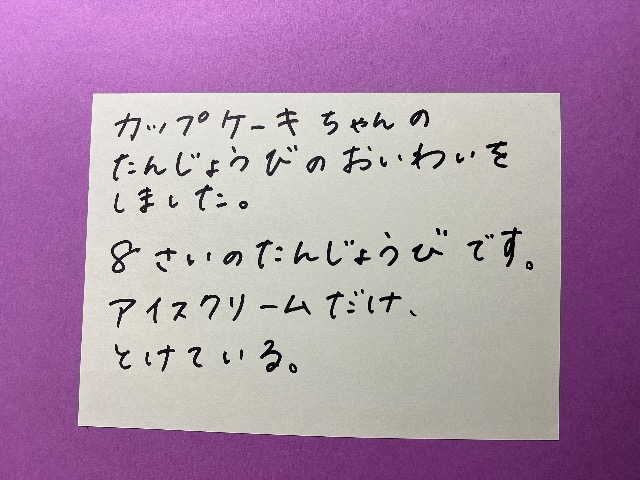 カップケーキちゃんの
たんじょうびのおいわいを
しました。
8さいのたんじょうびです。
アイスクリームだけ、
とけている。